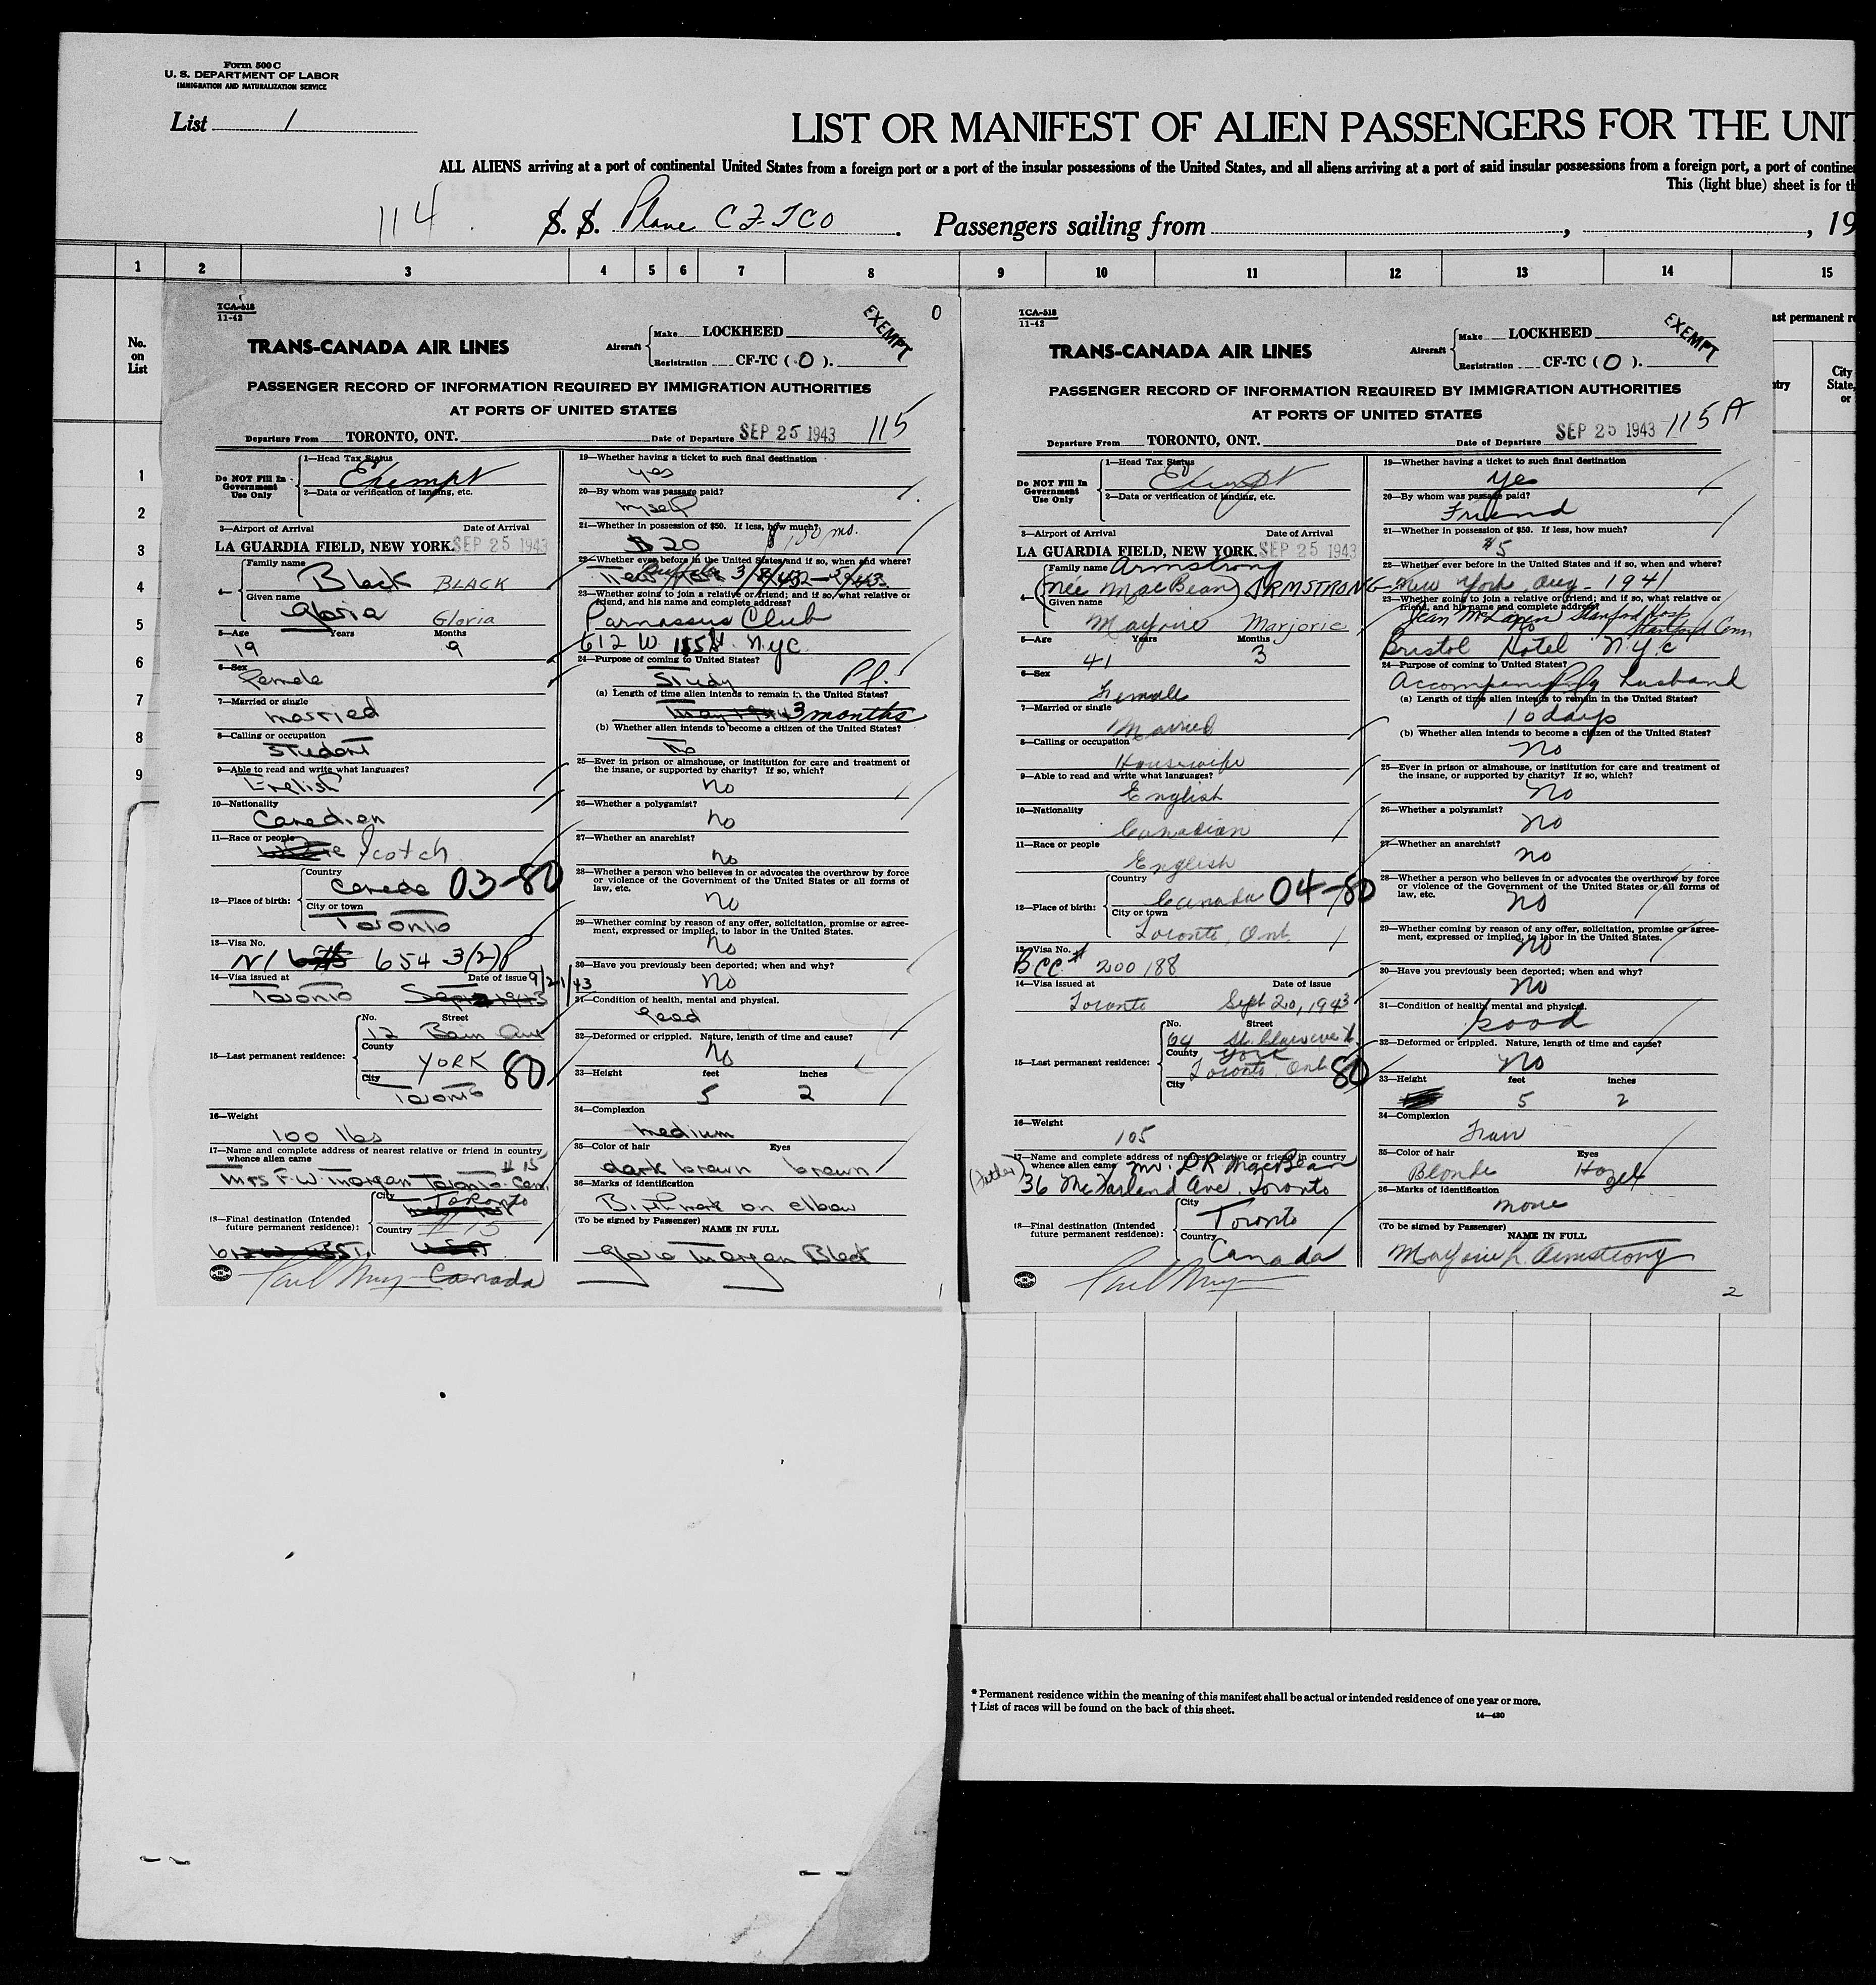 Form 500 C
U. S. DEPARTMENT OF LABOR
IMMIGRATION AND NATURALIZATION SERVICE
List 1
LIST OR MANIFEST OF ALIEN PASSENGERS FOR THE UNIT
ALL ALIENS arriving at a port of continental United States from a foreign port or a port of the insular possessions of the United States, and all aliens arriving at a port of said insular possessions from a foreign port, a port of contine
This (light blue) sheet is for th
114 S. S. Plane CF-TCO . Passengers sailing from , , 19
1 2 3 4 5 6 7 8 9 10 11 12 13 14 15
No.
on
List
ast permanent re
ntry
City
State,
or
1
2
3
4
5
6
7
8
9
TCA-518
11-42
0
EXEMPT
TRANS-CANADA AIR LINES
Aircraft
Make LOCKHEED
Registration CF-TC ( O ).
PASSENGER RECORD OF INFORMATION REQUIRED BY IMMIGRATION AUTHORITIES
AT PORTS OF UNITED STATES
115
Departure From TORONTO, ONT. Date of Departure SEP 25 1943
Do NOT Fill In
Government
Use Only
1—Head Tax Status
Exempt
2—Data or verification of landing, etc.
3—Airport of Arrival Date of Arrival
LA GUARDIA FIELD, NEW YORK. SEP 25 1943
4—
Family name
Black BLACK
Given name
Gloria Gloria
5—Age Years Months
19 9
6—Sex
Female
7—Married or single
married
8—Calling or occupation
Student
9—Able to read and write what languages?
English
10—Nationality
Canadian
11—Race or people
White Scotch
12—Place of birth:
Country
Canada 03-80
City or town
Toronto
13—Visa No.
NI 654 3(2)
14—Visa issued at Date of issue 9/21/43
Toronto
15—Last permanent residence:
No. Street
12 Bain Ave
County
YORK 80
City
Toronto
16—Weight
100 lbs
17—Name and complete address of nearest relative or friend in country
whence alien came
# 15
Mrs F. W. Morgan Toronto Can.
18—Final destination (Intended
future permanent residence):
City
Toronto
Country
Canada
19—Whether having a ticket to such final destination
yes
20—By whom was passage paid?
myself
21—Whether in possession of $50. If less, how much?
$20 $100 mo.
22—Whether ever before in the United States and if so, when and where?
23—Whether going to join a relative or friend; and if so, what relative or
friend, and his name and complete address?
Parnassus Club
612 W 115 St. NYC
24—Purpose of coming to United States?
Study
(a) Length of time alien intends to remain in the United States?
3 months
(b) Whether alien intends to become a citizen of the United States?
no
25—Ever in prison or almshouse, or institution for care and treatment of
the insane, or supported by charity? If so, which?
no
26—Whether a polygamist?
no
27—Whether an anarchist?
no
28—Whether a person who believes in or advocates the overthrow by force
or violence of the Government of the United States or all forms of
law, etc.
no
29—Whether coming by reason of any offer, solicitation, promise or agree-
ment, expressed or implied, to labor in the United States.
no
30—Have you previously been deported; when and why?
no
31—Condition of health, mental and physical.
good
32—Deformed or crippled. Nature, length of time and cause?
no
33—Height feet inches
5 2
34—Complexion
medium
35—Color of hair Eyes
dark brown brown
36—Marks of identification
Birthmark on elbow
(To be signed by Passenger) NAME IN FULL
Gloria Morgan Black
1
TCA-518
11-42
EXEMPT
TRANS-CANADA AIR LINES
Aircraft
Make LOCKHEED
Registration CF-TC ( O ).
PASSENGER RECORD OF INFORMATION REQUIRED BY IMMIGRATION AUTHORITIES
AT PORTS OF UNITED STATES
115 A
Departure From TORONTO, ONT. Date of Departure SEP 25 1943
Do NOT Fill In
Government
Use Only
1—Head Tax Status
Exempt
2—Data or verification of landing, etc.
3—Airport of Arrival Date of Arrival
LA GUARDIA FIELD, NEW YORK. SEP 25 1943
4—
Family name Armstrong
(née MacBean) ARMSTRONG
Given name
Marjorie Marjorie
5—Age Years Months
41 3
6—Sex
Female
7—Married or single
Married
8—Calling or occupation
Housewife
9—Able to read and write what languages?
English
10—Nationality
Canadian
11—Race or people
English
12—Place of birth:
Country
Canada 04-80
City or town
Toronto, Ont.
13—Visa No.
BCC # 200188
14—Visa issued at Date of issue
Toronto Sept 20, 1943
15—Last permanent residence:
No. Street
64 St. W.
County York
Toronto, Ont. 80
City
16—Weight
105
17—Name and complete address of nearest relative or friend in country
whence alien came Mr. MacBean
(Father) 36 McFarland Ave. Toronto
18—Final destination (Intended
future permanent residence):
City
Toronto
Country
Canada
19—Whether having a ticket to such final destination
yes
20—By whom was passage paid?
Friend
21—Whether in possession of $50. If less, how much?
$5
22—Whether ever before in the United States and if so, when and where?
New York Aug - 1941
23—Whether going to join a relative or friend; and if so, what relative or
friend, and his name and complete address?
Jean McLaren Hartford Conn
Bristol Hotel N.Y.C
24—Purpose of coming to United States?
Accompanying husband
(a) Length of time alien intends to remain in the United States?
10 days
(b) Whether alien intends to become a citizen of the United States?
no
25—Ever in prison or almshouse, or institution for care and treatment of
the insane, or supported by charity? If so, which?
no
26—Whether a polygamist?
no
27—Whether an anarchist?
no
28—Whether a person who believes in or advocates the overthrow by force
or violence of the Government of the United States or all forms of
law, etc.
no
29—Whether coming by reason of any offer, solicitation, promise or agree-
ment, expressed or implied, to labor in the United States.
no
30—Have you previously been deported; when and why?
no
31—Condition of health, mental and physical.
good
32—Deformed or crippled. Nature, length of time and cause?
no
33—Height feet inches
5 2
34—Complexion
35—Color of hair Eyes
Blonde Hazel
36—Marks of identification
none
(To be signed by Passenger) NAME IN FULL
Marjorie L. Armstrong
2
* Permanent residence within the meaning of this manifest shall be actual or intended residence of one year or more.
† List of races will be found on the back of this sheet.
14—430